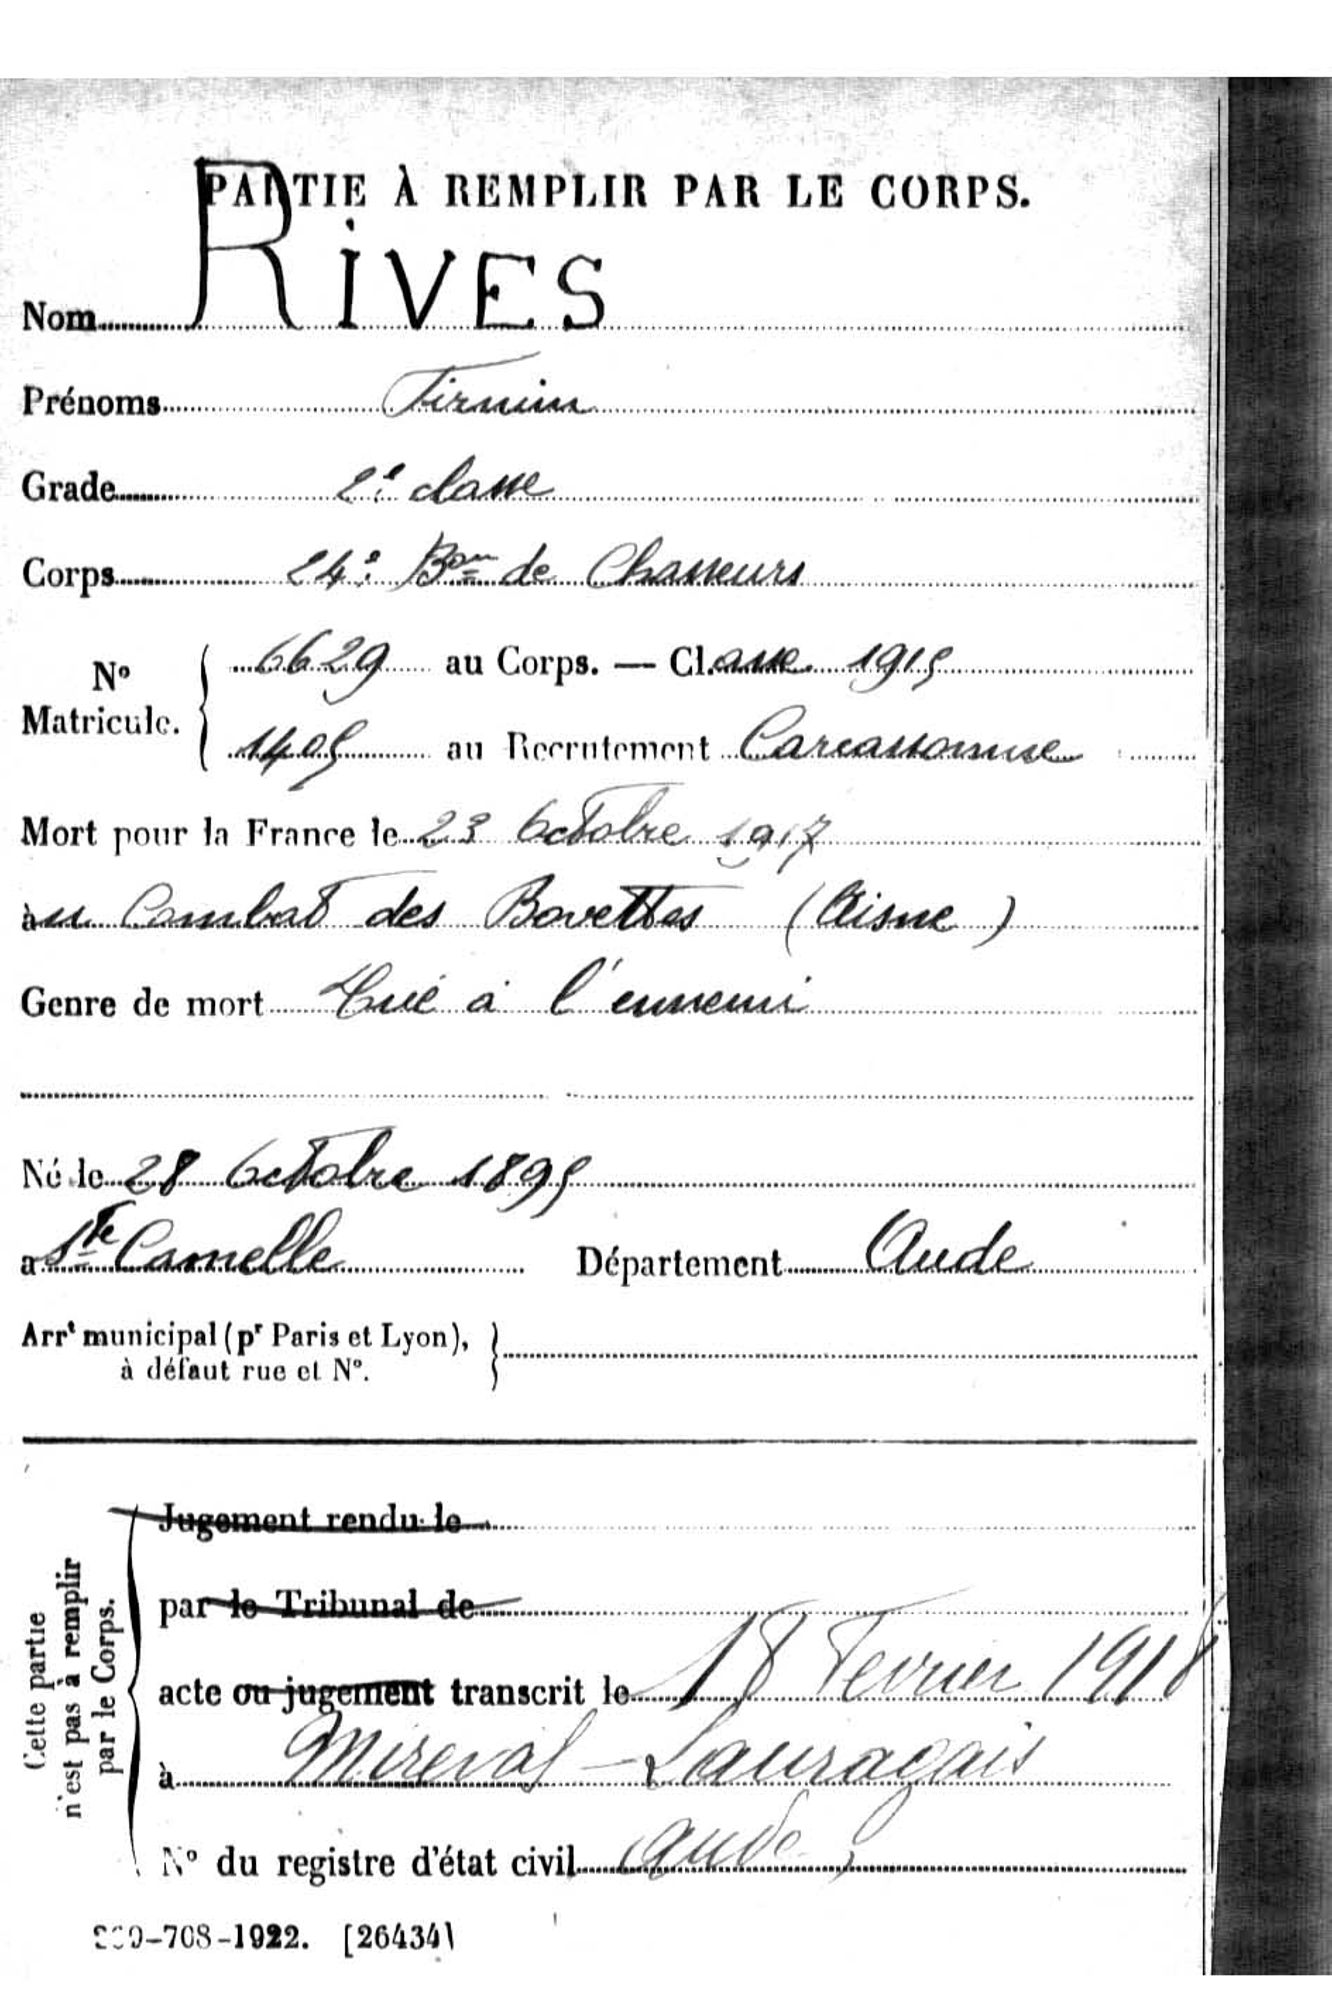 PARTIE À REMPLIR PAR LE CORPS.
Nom RIVES
Prénoms Firmin
Grade 2e classe
Corps 24e Bon de Chasseurs
No Matricule. 6629 au Corps. — Cl.asse 1915
1405 au Recrutement Carcassonne
Mort pour la France le 23 Octobre 1917
au Combat des Bovettes (Aisne)
Genre de mort Tué à l'ennemi
Né le 28 Octobre 1895
à Ste Camelle Département Aude
Arrt municipal (pr Paris et Lyon),
à défaut rue et No.
Cette partie
n'est pas à remplir
par le Corps.
Jugement rendu le
par le Tribunal de
acte ou jugement transcrit le 18 Fevrier 1918
à Mireval-Lauragais
No du registre d'état civil (Aude)
-708-1922. [26434]